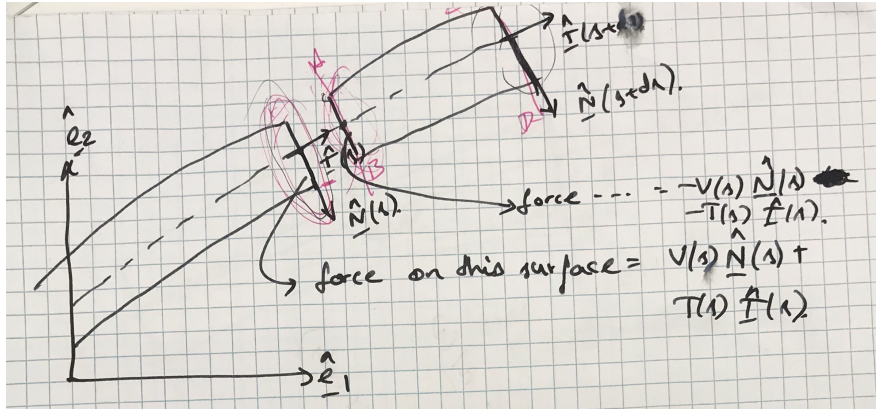 T̂(s+ds)
N̂(s+ds).
A
ê2
T̂(s)
B
D
N̂(s).
force .... = -V(s) N̂(s)
-T(s) T̂(s).
force on this surface = V(s) N̂(s) +
T(s) T̂(s).
ê1